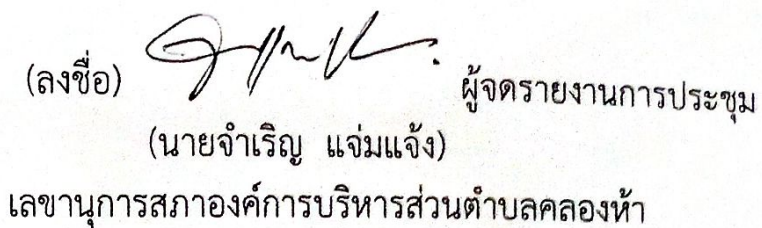 (ลงชื่อ) ผู้จดรายงานการประชุม
(นายจำเริญ แจ่มแจ้ง)
เลขานุการสภาองค์การบริหารส่วนตำบลคลองห้า